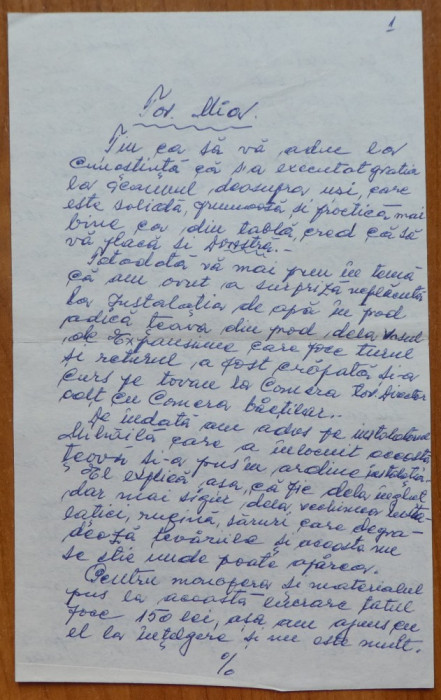 1
Tov. Mior.
Tin ca să vă aduc la
cunostintă că s-a executat gratia
la geamul, deasupra usi, care
este solidă, frumoasă si practică, mai
bine ca din tablă, cred că să
vă placă si Dvoastră.-
Totodată vă mai pun în temă
că am avut a surpriză neplăcută
la Instalatia de apă în pod
adică teava din pod, dela vasul
de Expansiune care face turul
si returul, a fost crăpată si-a
curs pe tavan la Camera Tov. Director
colt cu Camera băetilor..
De îndată am adus pe instalatorul
Mihăilă care a înlocuit această
teavă si-a pus în ordine instalatia.
El explică, asa, că fie dela înghet
dar mai sigur dela vechimea insta-
latiei, rugină, săruri care degra-
dează tevăriile si aceasta nu
se stie unde poate apărea.
Pentru manopera si materialul
pus la această lucrare totul
face 150 lei, asa am ajuns cu
el la întelegere si nu este mult.
%